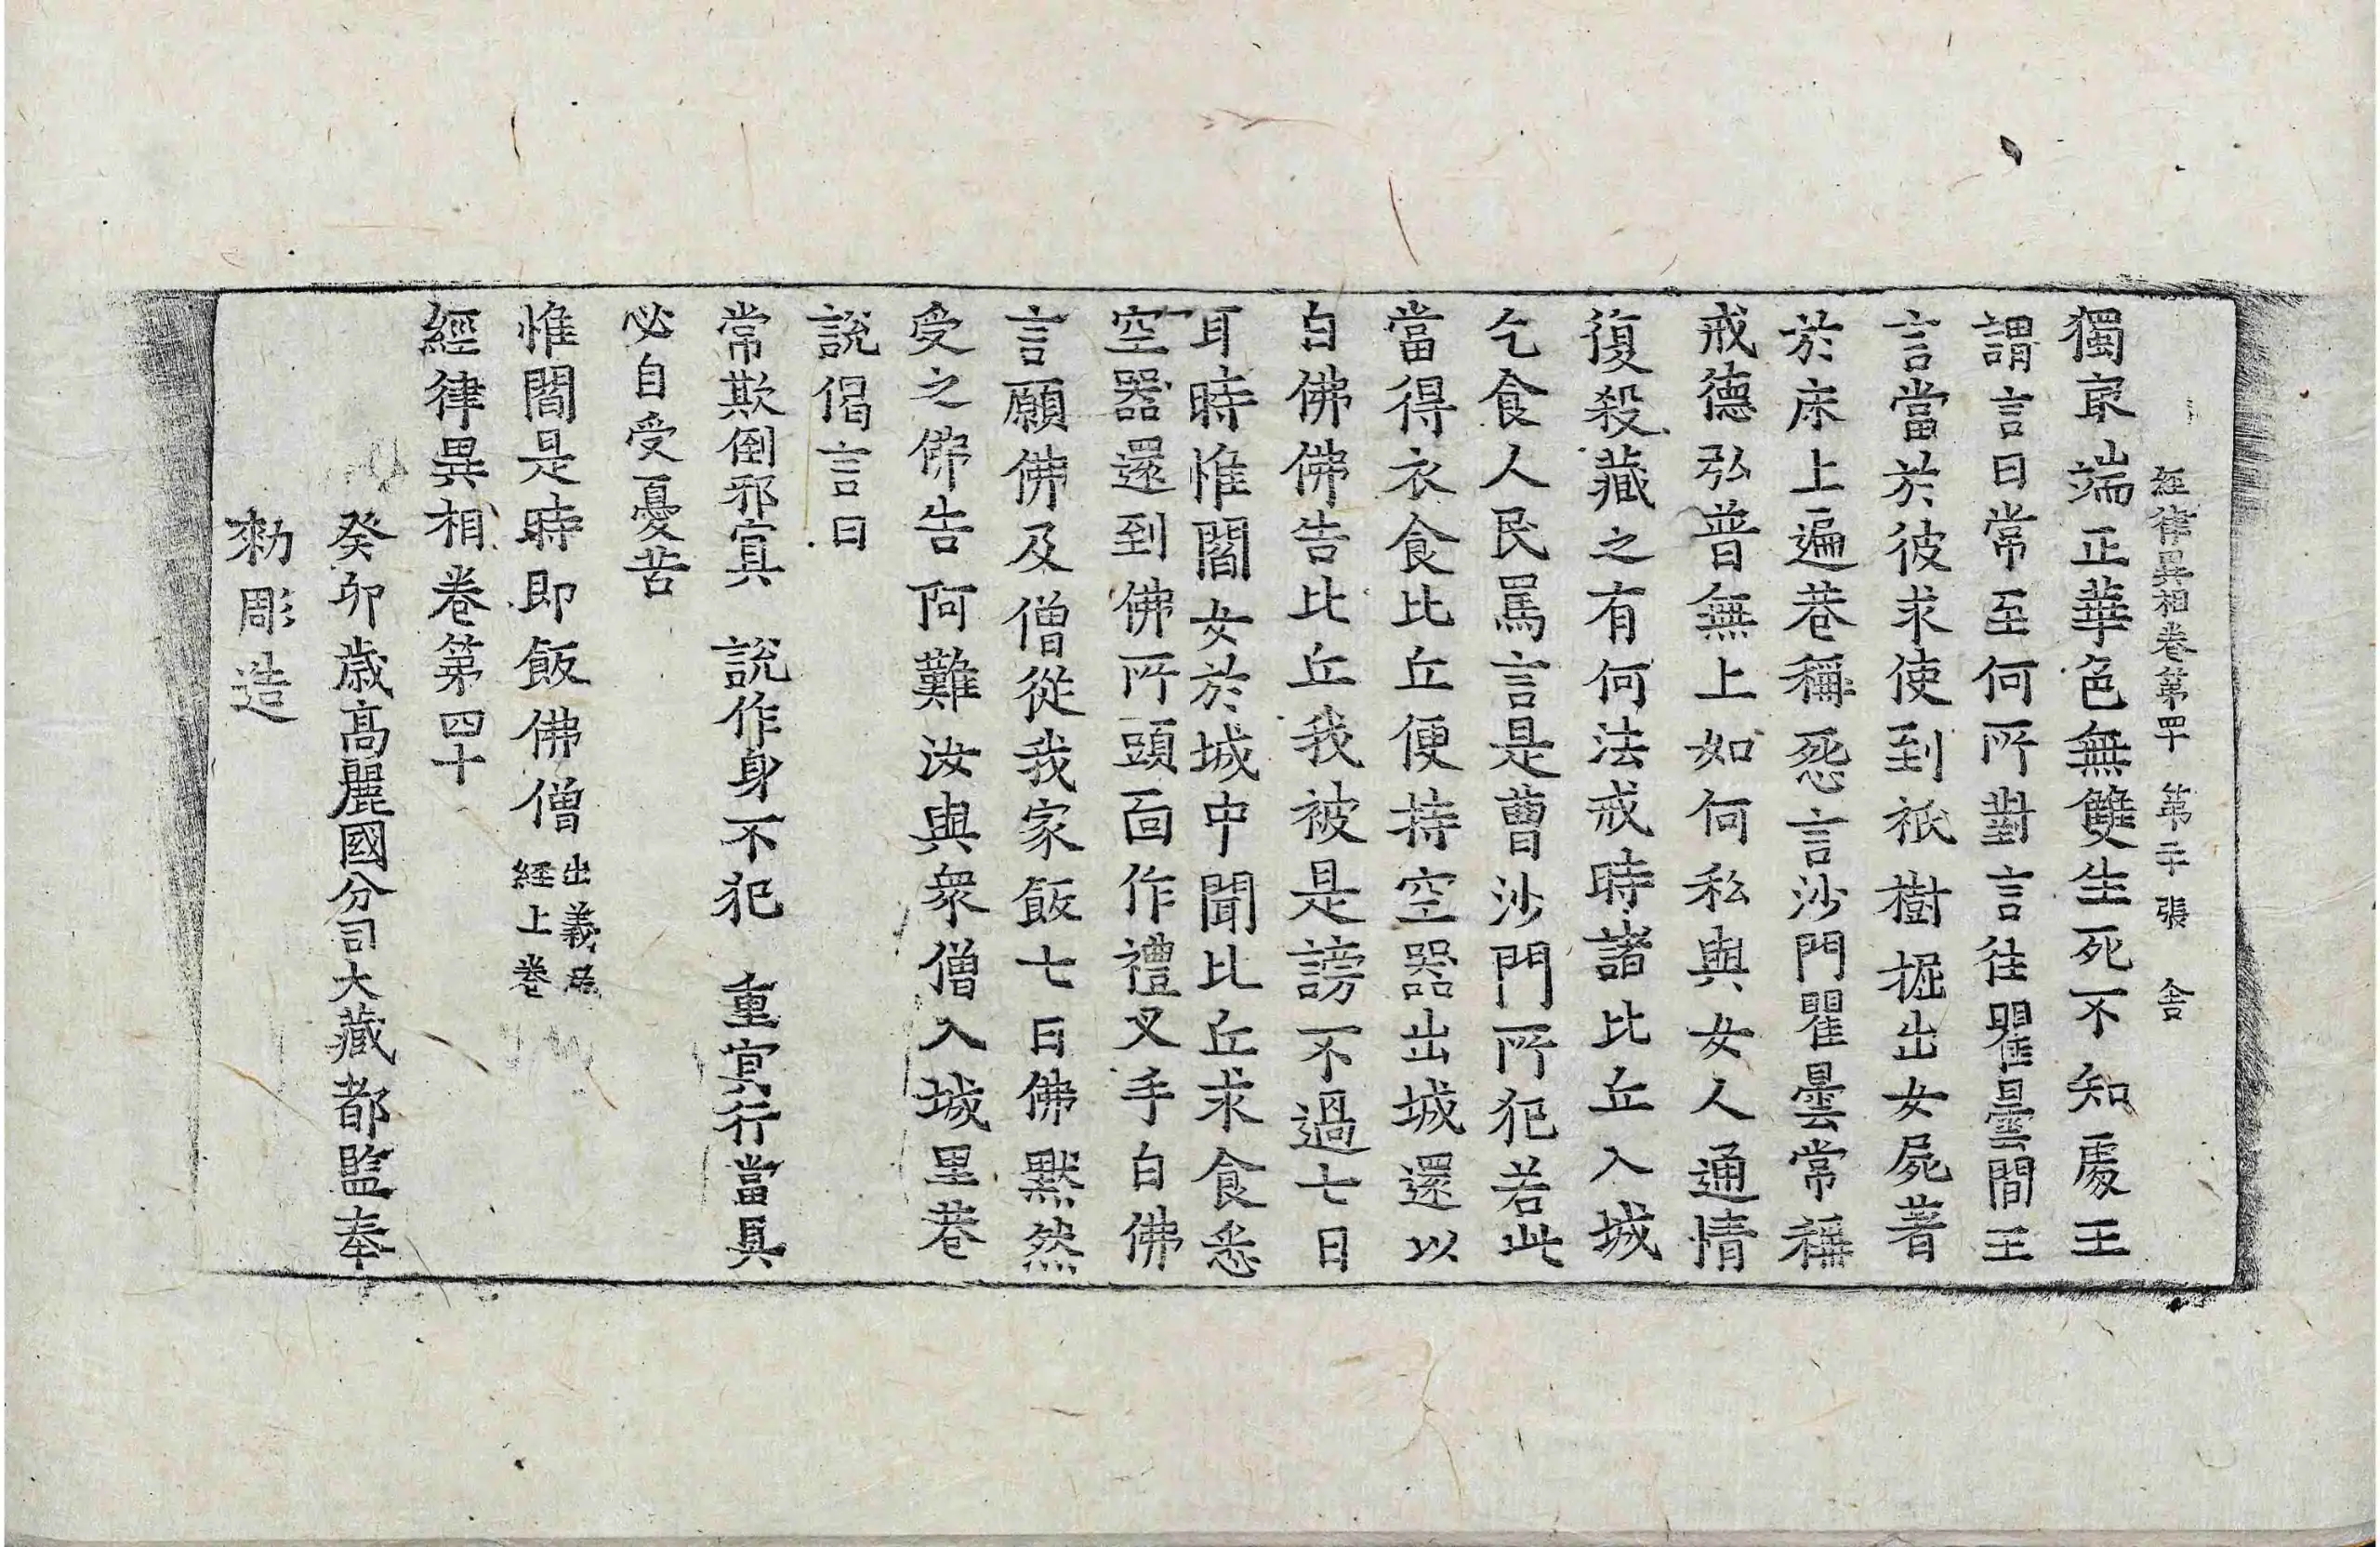 經律異相卷第四十 第二十張 舍
獨㝡端正華色無雙生死不知處王
謂言曰常至何所對言往瞿曇間王
言當於彼求使到祇樹掘出女屍著
於床上遍巷稱怨言沙門瞿曇常稱
戒德弘普無上如何私與女人通情
復殺藏之有何法戒時諸比丘入城
乞食人民罵言是曹沙門所犯若此
當得衣食比丘便持空器出城還以
白佛佛告比丘我被是謗不過七日
耳時惟閻女於城中聞比丘求食悉
空器還到佛所頭面作禮叉手白佛
言願佛及僧從我家飯七日佛默然
受之佛告阿難汝與衆僧入城里巷
說偈言曰
常欺倒邪冥 說作身不犯 重冥行當具
必自受憂苦
惟閻是時即飯佛僧 出義足經上卷
經律異相卷第四十
癸卯歲高麗國分司大藏都監奉
勑彫造